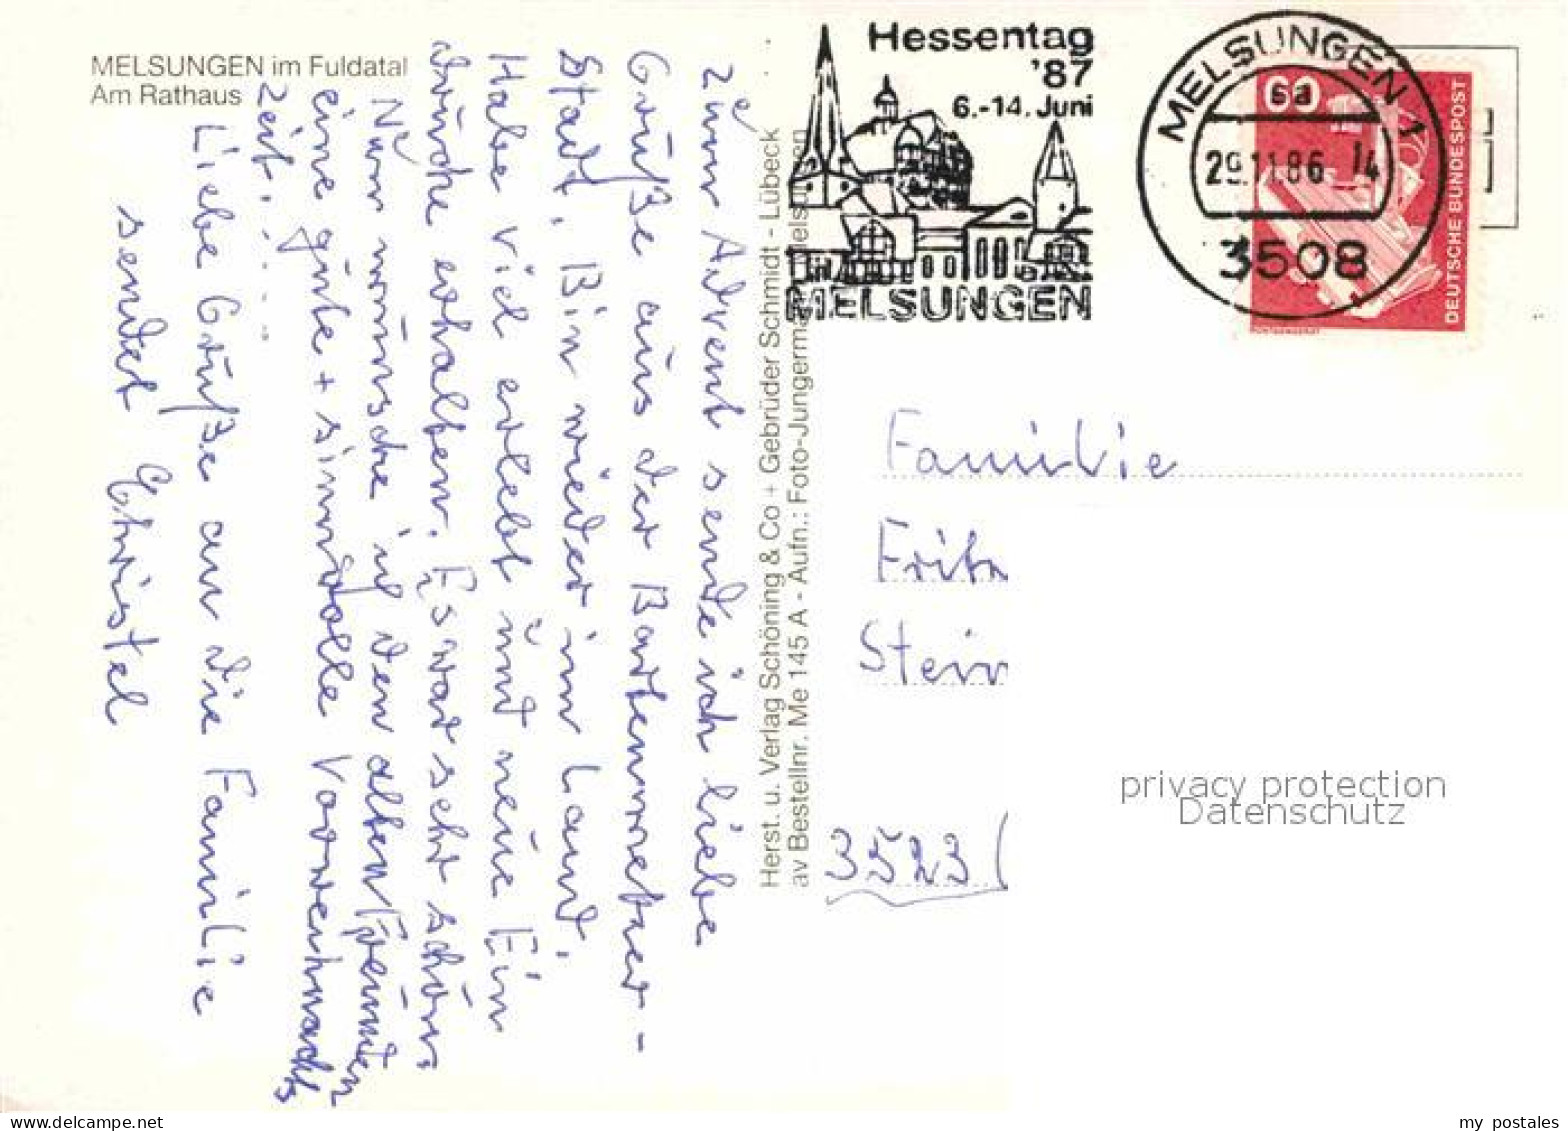 MELSUNGEN im Fuldatal
Am Rathaus
Hessentag
'87
6.-14. Juni
MELSUNGEN
MELSUNGEN 1
sa
29.11.86 14
3508
60
DEUTSCHE BUNDESPOST
Zum Advent sende ich liebe
Grüße aus der Bartenwetzer-
Stadt. Bin wieder im Land.
Habe viel erlebt und neue Ein
drücke erhalten. Es war sehr schön.
Nun wünsche ich den alten Freunden
eine gute + sinnvolle Vorweihnachts
zeit.
Liebe Grüße an die Familie
sendet Christel
Herst. u. Verlag Schöning & Co + Gebrüder Schmidt - Lübeck
av Bestellnr. Me 145 A - Aufn.: Foto-Jungermann Melsungen
Familie
Fritz
Stein
3523
privacy protection
Datenschutz
my postales